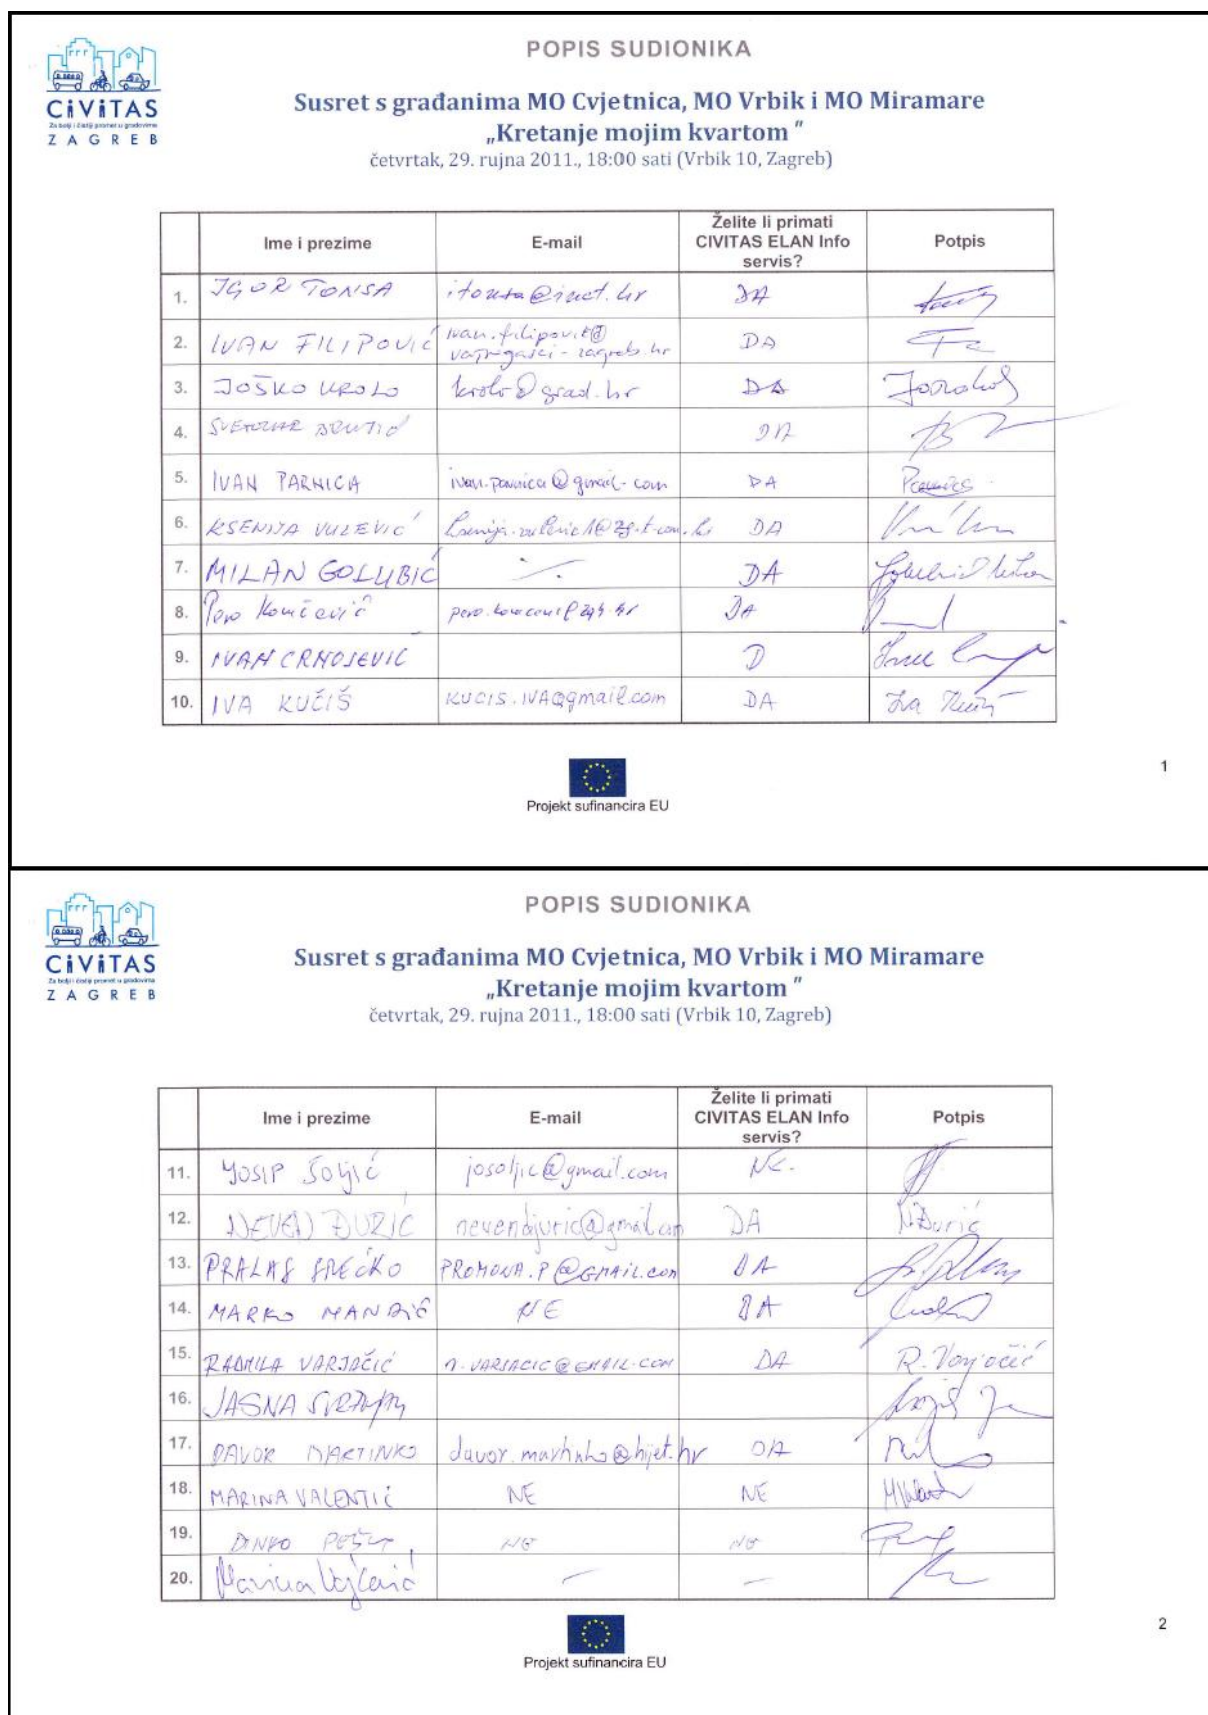 CiViTAS
Za bolji i čišći promet u gradovima
ZAGREB
POPIS SUDIONIKA
Susret s građanima MO Cvjetnica, MO Vrbik i MO Miramare
„Kretanje mojim kvartom "
četvrtak, 29. rujna 2011., 18:00 sati (Vrbik 10, Zagreb)
Ime i prezime E-mail Želite li primati CIVITAS ELAN Info servis? Potpis
1. IGOR TONSA DA
2. IVAN FILIPOVIĆ DA
3. JOŠKO KROLO krolo@grad.hr DA
4. DA
5. IVAN PARNICA ivan.parnica@gmail.com DA
6. KSENIJA VULEVIĆ DA
7. MILAN GOLUBIĆ DA
8. Pero DA
9. IVAN CRNOJEVIC D
10. IVA KUČIŠ KUCIS.IVA@gmail.com DA
Projekt sufinancira EU
1
CiViTAS
Za bolji i čišći promet u gradovima
ZAGREB
POPIS SUDIONIKA
Susret s građanima MO Cvjetnica, MO Vrbik i MO Miramare
„Kretanje mojim kvartom "
četvrtak, 29. rujna 2011., 18:00 sati (Vrbik 10, Zagreb)
Ime i prezime E-mail Želite li primati CIVITAS ELAN Info servis? Potpis
11. JOSIP ŠOLJIĆ josoljic@gmail.com NE.
12. NEVEN ĐURIĆ DA N.Đurić
13. PRALAS SREĆKO PROMONA.P@GMAIL.com DA
14. MARKO MANDIĆ NE DA
15. RADMILA VARJAČIĆ R.VARJACIC@GMAIL.COM DA R. Varjačić
16. JASNA
17. DAVOR MARTINKO davor.martinko@hijet.hr DA
18. MARINA VALENTIĆ NE NE
19. DINKO NE NE
20. — —
Projekt sufinancira EU
2